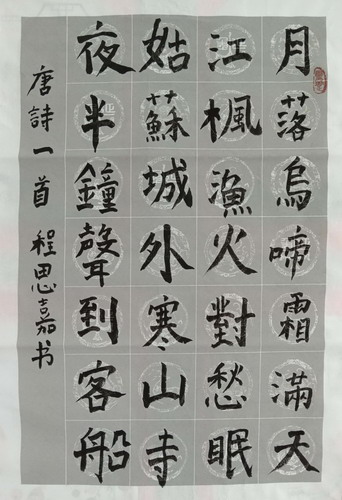 月落烏啼霜滿天
江楓漁火對愁眠
姑蘇城外寒山寺
夜半鐘聲到客船
唐詩一首 程思嘉书